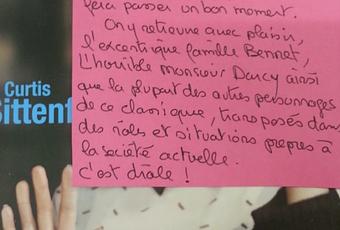 fera passer un bon moment.
On y retrouve avec plaisir,
l'excentrique famille Bennet,
L'horrible monsieur Darcy ainsi
que la plupart des autres personnages
de ce classique, transposés dans
des rôles et situations propres à
la société actuelle.
C'est drôle !
Curtis
Sittenf